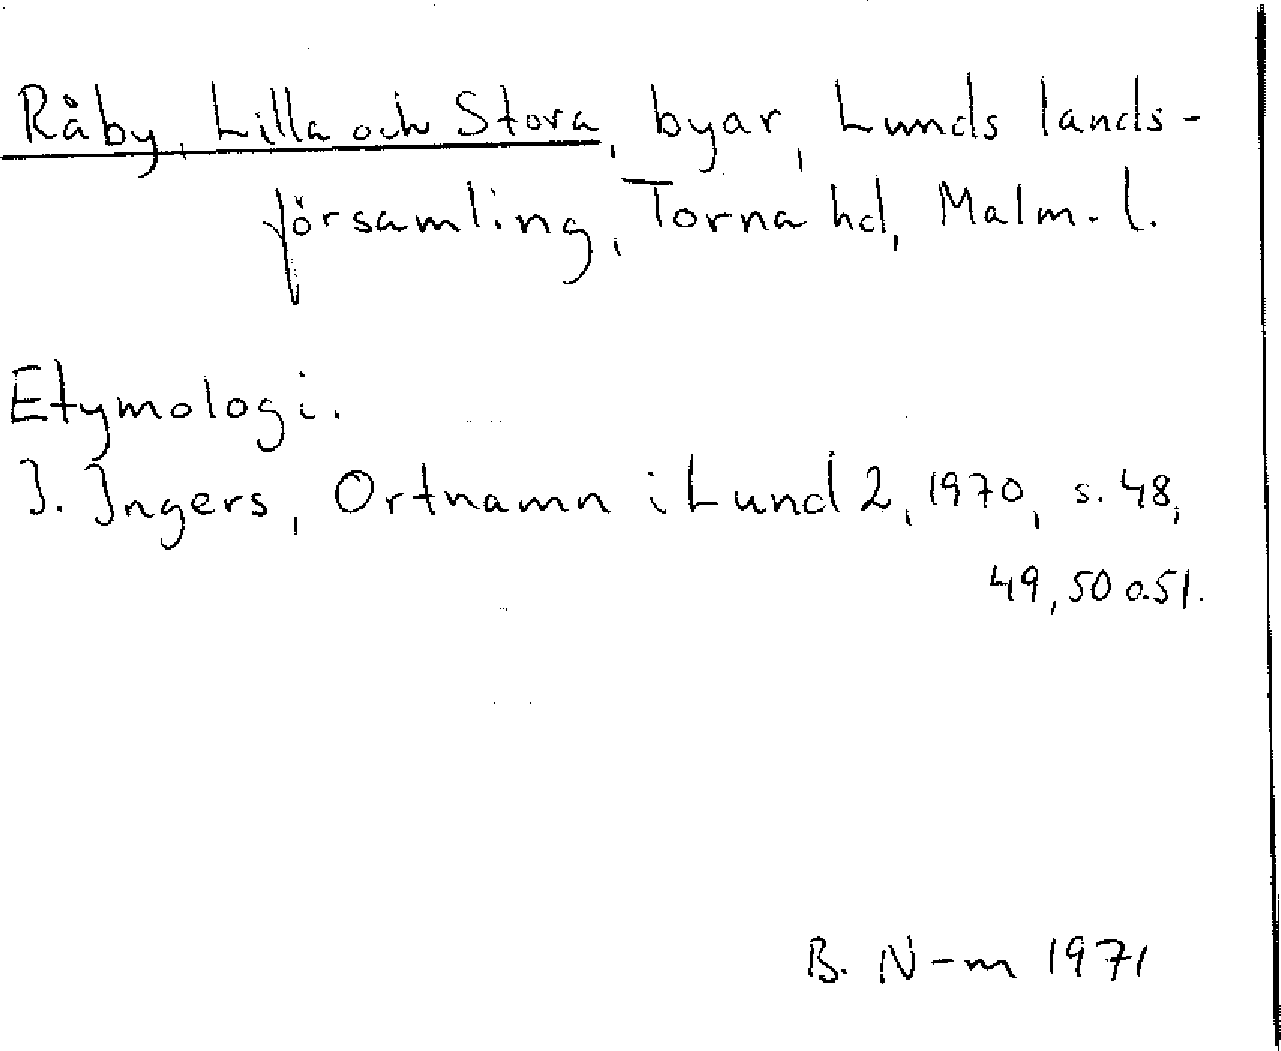 Råby, Lilla och Stora, byar, Lunds lands-
församling, Torna hd, Malm. l.
Etymologi.
I. Ingers, Ortnamn i Lund 2, 1970, s. 48,
49, 50 o. 51.
B. N-m 1971